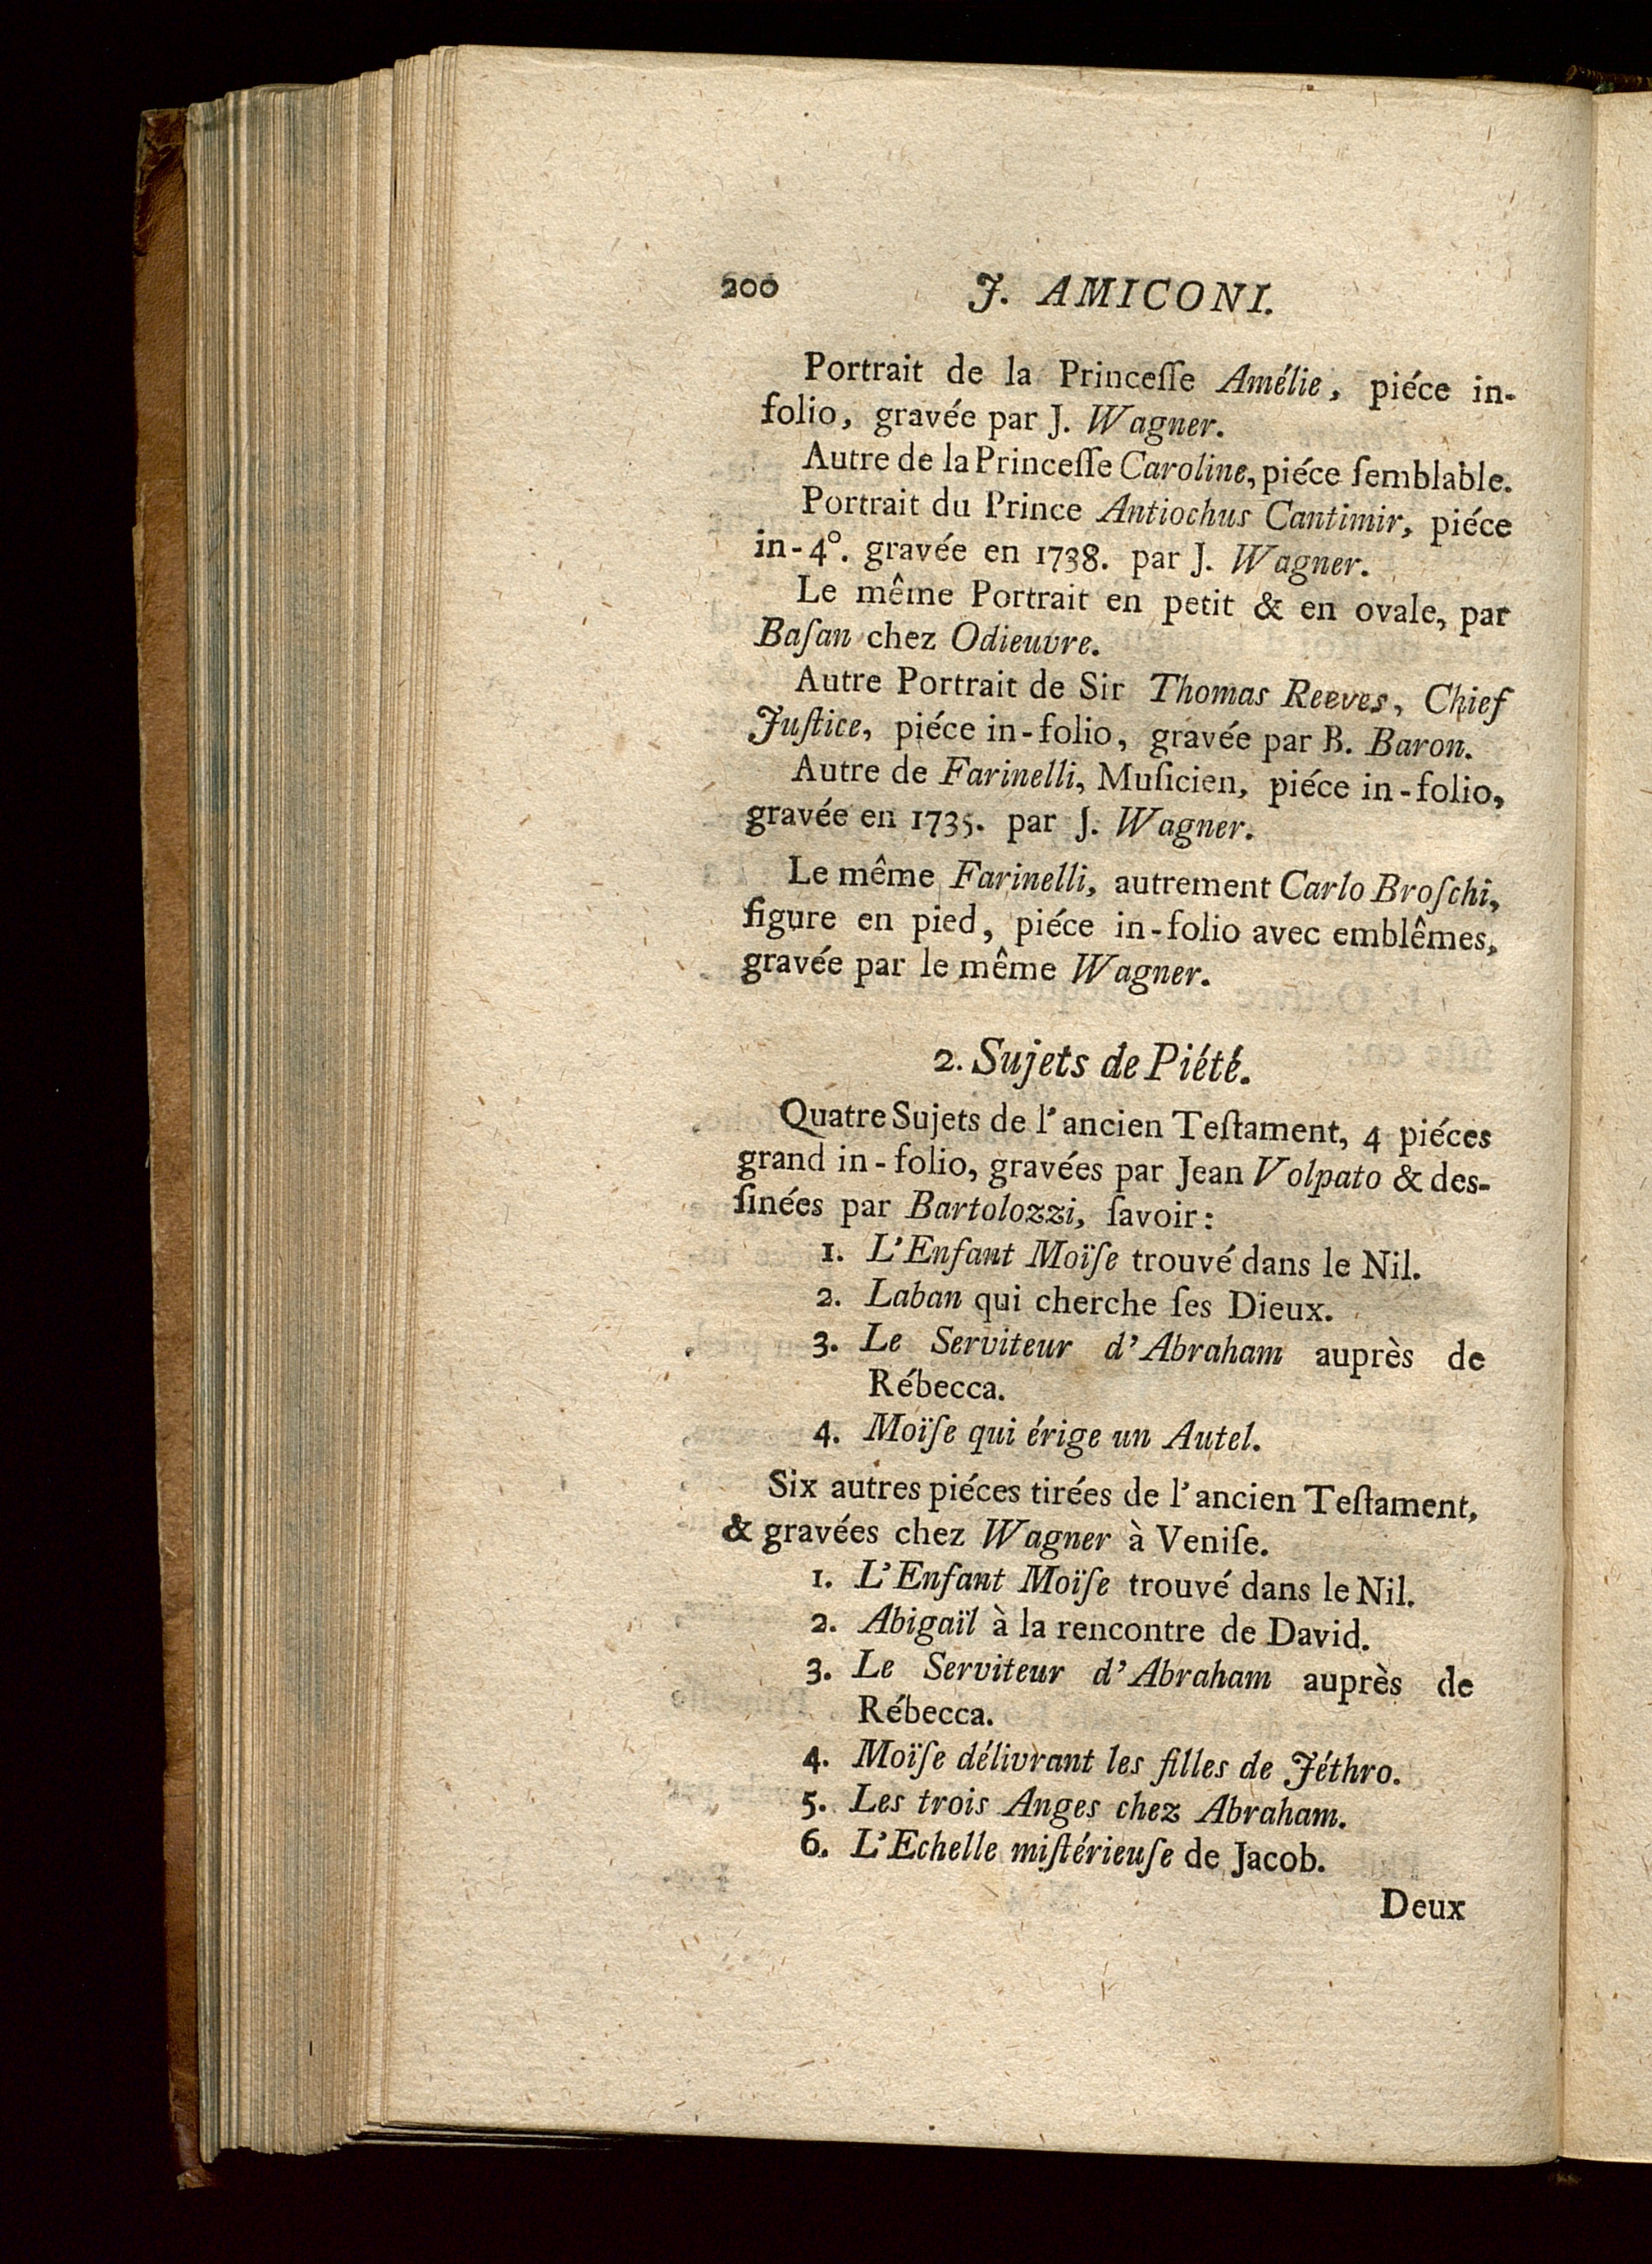 200 J. AMICONI.
Portrait de la Princeſſe Amélie, piéce in-
folio, gravée par J. Wagner.
Autre de la Princeſſe Caroline, piéce ſemblable.
Portrait du Prince Antiochus Cantimir, piéce
in-4°. gravée en 1738. par J. Wagner.
Le même Portrait en petit & en ovale, par
Baſan chez Odieuvre.
Autre Portrait de Sir Thomas Reeves, Chief
Juſtice, piéce in-folio, gravée par B. Baron.
Autre de Farinelli, Muſicien, piéce in-folio,
gravée en 1735. par J. Wagner.
Le même Farinelli, autrement Carlo Broſchi,
figure en pied, piéce in-folio avec emblêmes,
gravée par le même Wagner.
2. Sujets de Piété.
Quatre Sujets de l'ancien Teſtament, 4 piéces
grand in-folio, gravées par Jean Volpato & des-
ſinées par Bartolozzi, ſavoir:
1. L'Enfant Moïſe trouvé dans le Nil.
2. Laban qui cherche ſes Dieux.
3. Le Serviteur d'Abraham auprès de
Rébecca.
4. Moïſe qui érige un Autel.
Six autres piéces tirées de l'ancien Teſtament,
& gravées chez Wagner à Veniſe.
1. L'Enfant Moïſe trouvé dans le Nil.
2. Abigaïl à la rencontre de David.
3. Le Serviteur d'Abraham auprès de
Rébecca.
4. Moïſe délivrant les filles de Jéthro.
5. Les trois Anges chez Abraham.
6. L'Echelle miſtérieuſe de Jacob.
Deux